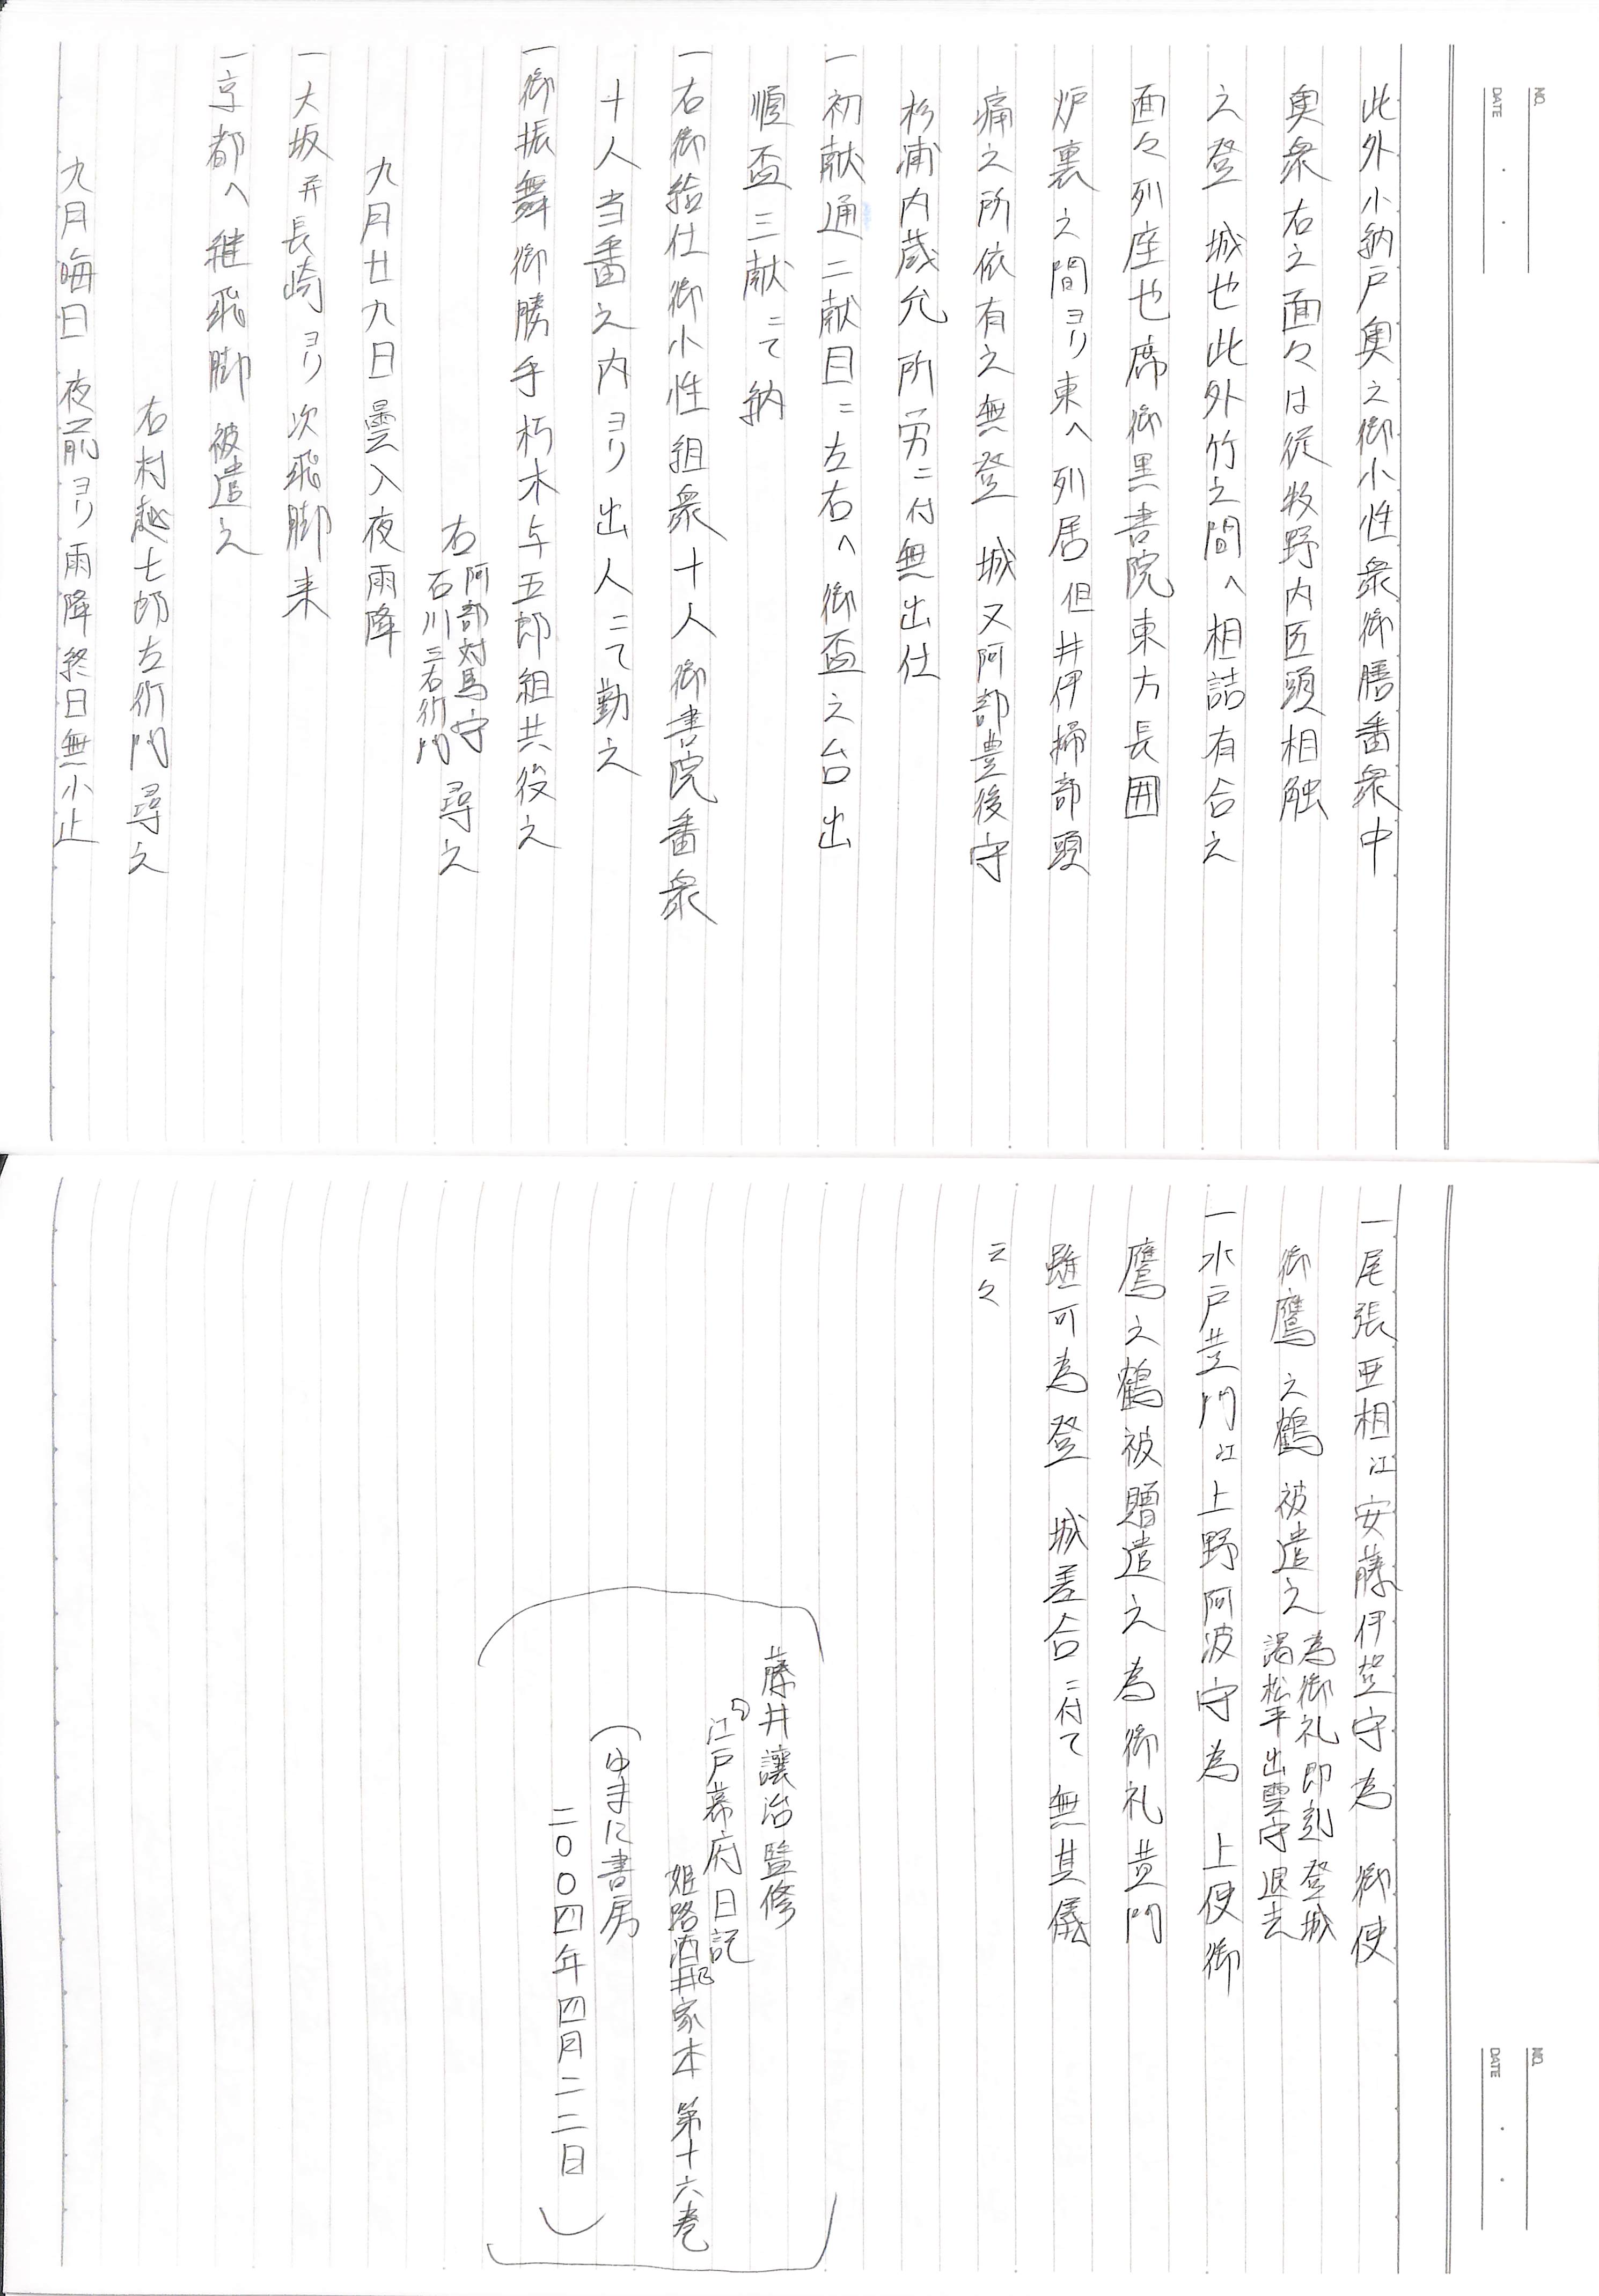 NO.
DATE
此外小納戸奥之御小性衆御膳番衆中
奥衆右之面々は従牧野内匠頭相触
之登　城也此外竹之間へ相詰有合之
面々列座也席御黒書院東方長囲
炉裏之間ヨリ東へ列居但井伊掃部頭
痛之所依有之無登　城又阿部豊後守
杉浦内蔵允所労ニ付無出仕
一初献通二献目ニ左右へ御盃之台出
順盃三献ニて納
一右御給仕御小性組衆十人御書院番衆
十人当番之内ヨリ出人ニて勤之
一御振舞御勝手朽木与五郎組共役之
右阿部対馬守
石川三右衛門　尋之
九月廿九日曇入夜雨降
一大坂并長崎ヨリ次飛脚来
一京都へ継飛脚被遣之
右村越七郎左衛門尋之
九月晦日　夜前ヨリ雨降終日無小止
NO.
DATE
一尾張亜相江安藤伊賀守為　御使
御鷹之鶴　被遣之
為御礼即刻登城
謁松平出雲守退去
一水戸黄門江上野阿波守為　上使御
鷹之鶴被贈遣之為御礼黄門
雖可為登　城差合ニ付て無其儀
云々
藤井讓治監修
江戸幕府日記
姫路酒井家本　第十六巻
（ゆまに書房
二〇〇四年四月二二日）